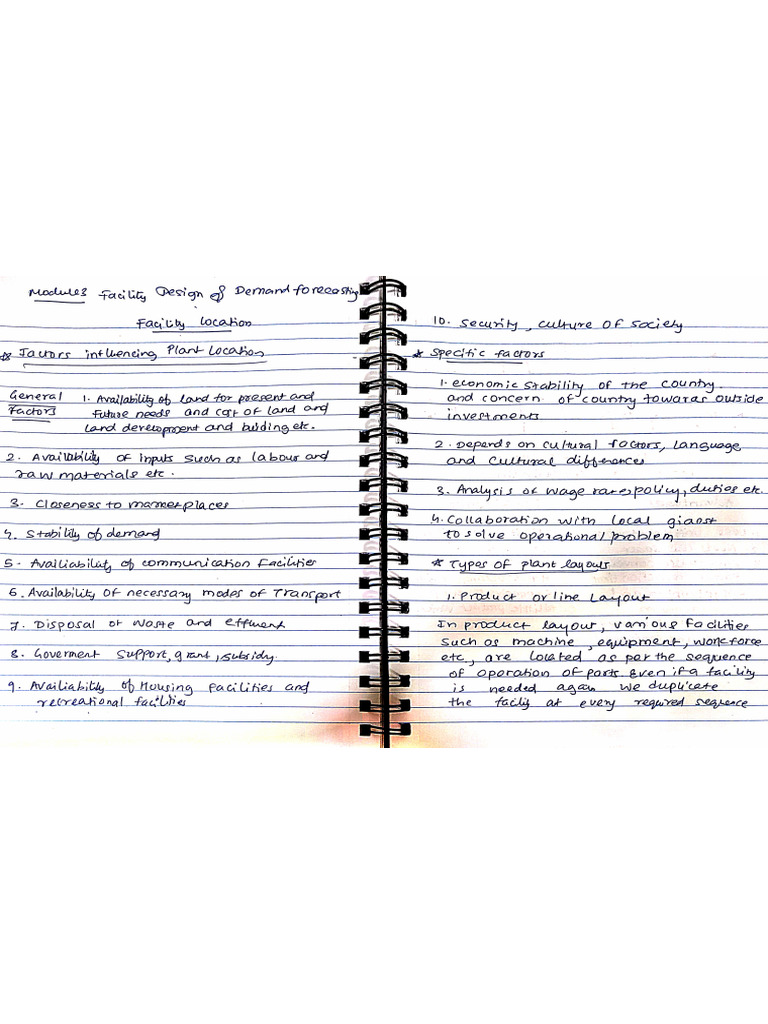 Module3 Facility Design & Demand forecasting
Facility Location
* Factors influencing Plant Location
General Factors 1. Availability of land for present and
future needs and cost of land and
land development and building etc.
2. Availability of inputs such as labour and
raw materials etc.
3. Closeness to market places
4. Stability of demand
5. Availiability of communication Facilities
6. Availability of necessary modes of Transport
7. Disposal of Waste and effluent
8. Goverment Support, grant, subsidy.
9. Availiability of Housing Facilities and
recreational facilities
10. Security, culture of Society
* Specific factors
1. economic stability of the country.
and concern of country towards outside
investments
2. Depends on cultural factors, language
and cultural differences
3. Analysis of wage rates policy, duties etc.
4. Collaboration with local giant
to solve operational problem
* Types of plant layouts
1. Product or line Layout
In product layout, various Facilities
such as machine, equipment, workforce
etc, are located as per the sequence
of operation of parts. Even if a facility
is needed again we duplicate
the facility at every required sequence